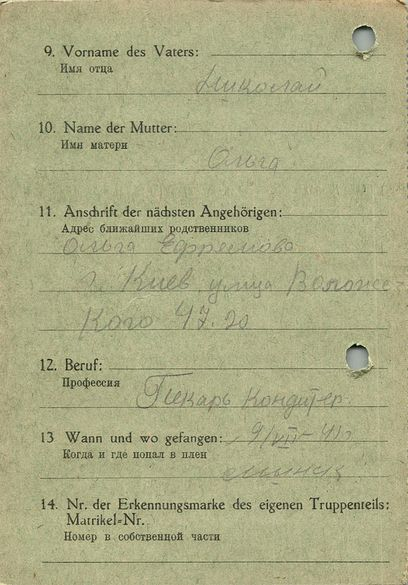 9. Vorname des Vaters:
Имя отца
Николай
10. Name der Mutter:
Имя матери
Ольга
11. Anschrift der nächsten Angehörigen:
Адрес ближайших родственников
Ольга Ефремова
г. Киев улица
кого 47. 20
12. Beruf:
Профессия
Пекарь Кондитер.
13 Wann und wo gefangen:
Когда и где попал в плен
14. Nr. der Erkennungsmarke des eigenen Truppenteils:
Matrikel=Nr.
Номер в собственной части